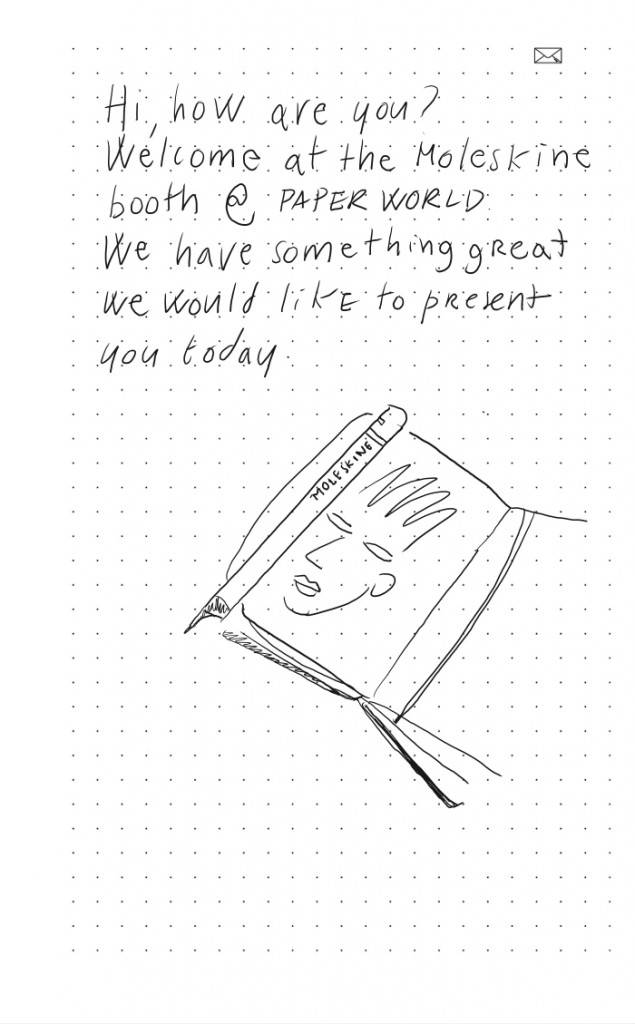 Hi, how are you?
Welcome at the Moleskine
booth @ PAPER WORLD
We have something great
we would like to present
you today.
MOLESKINE